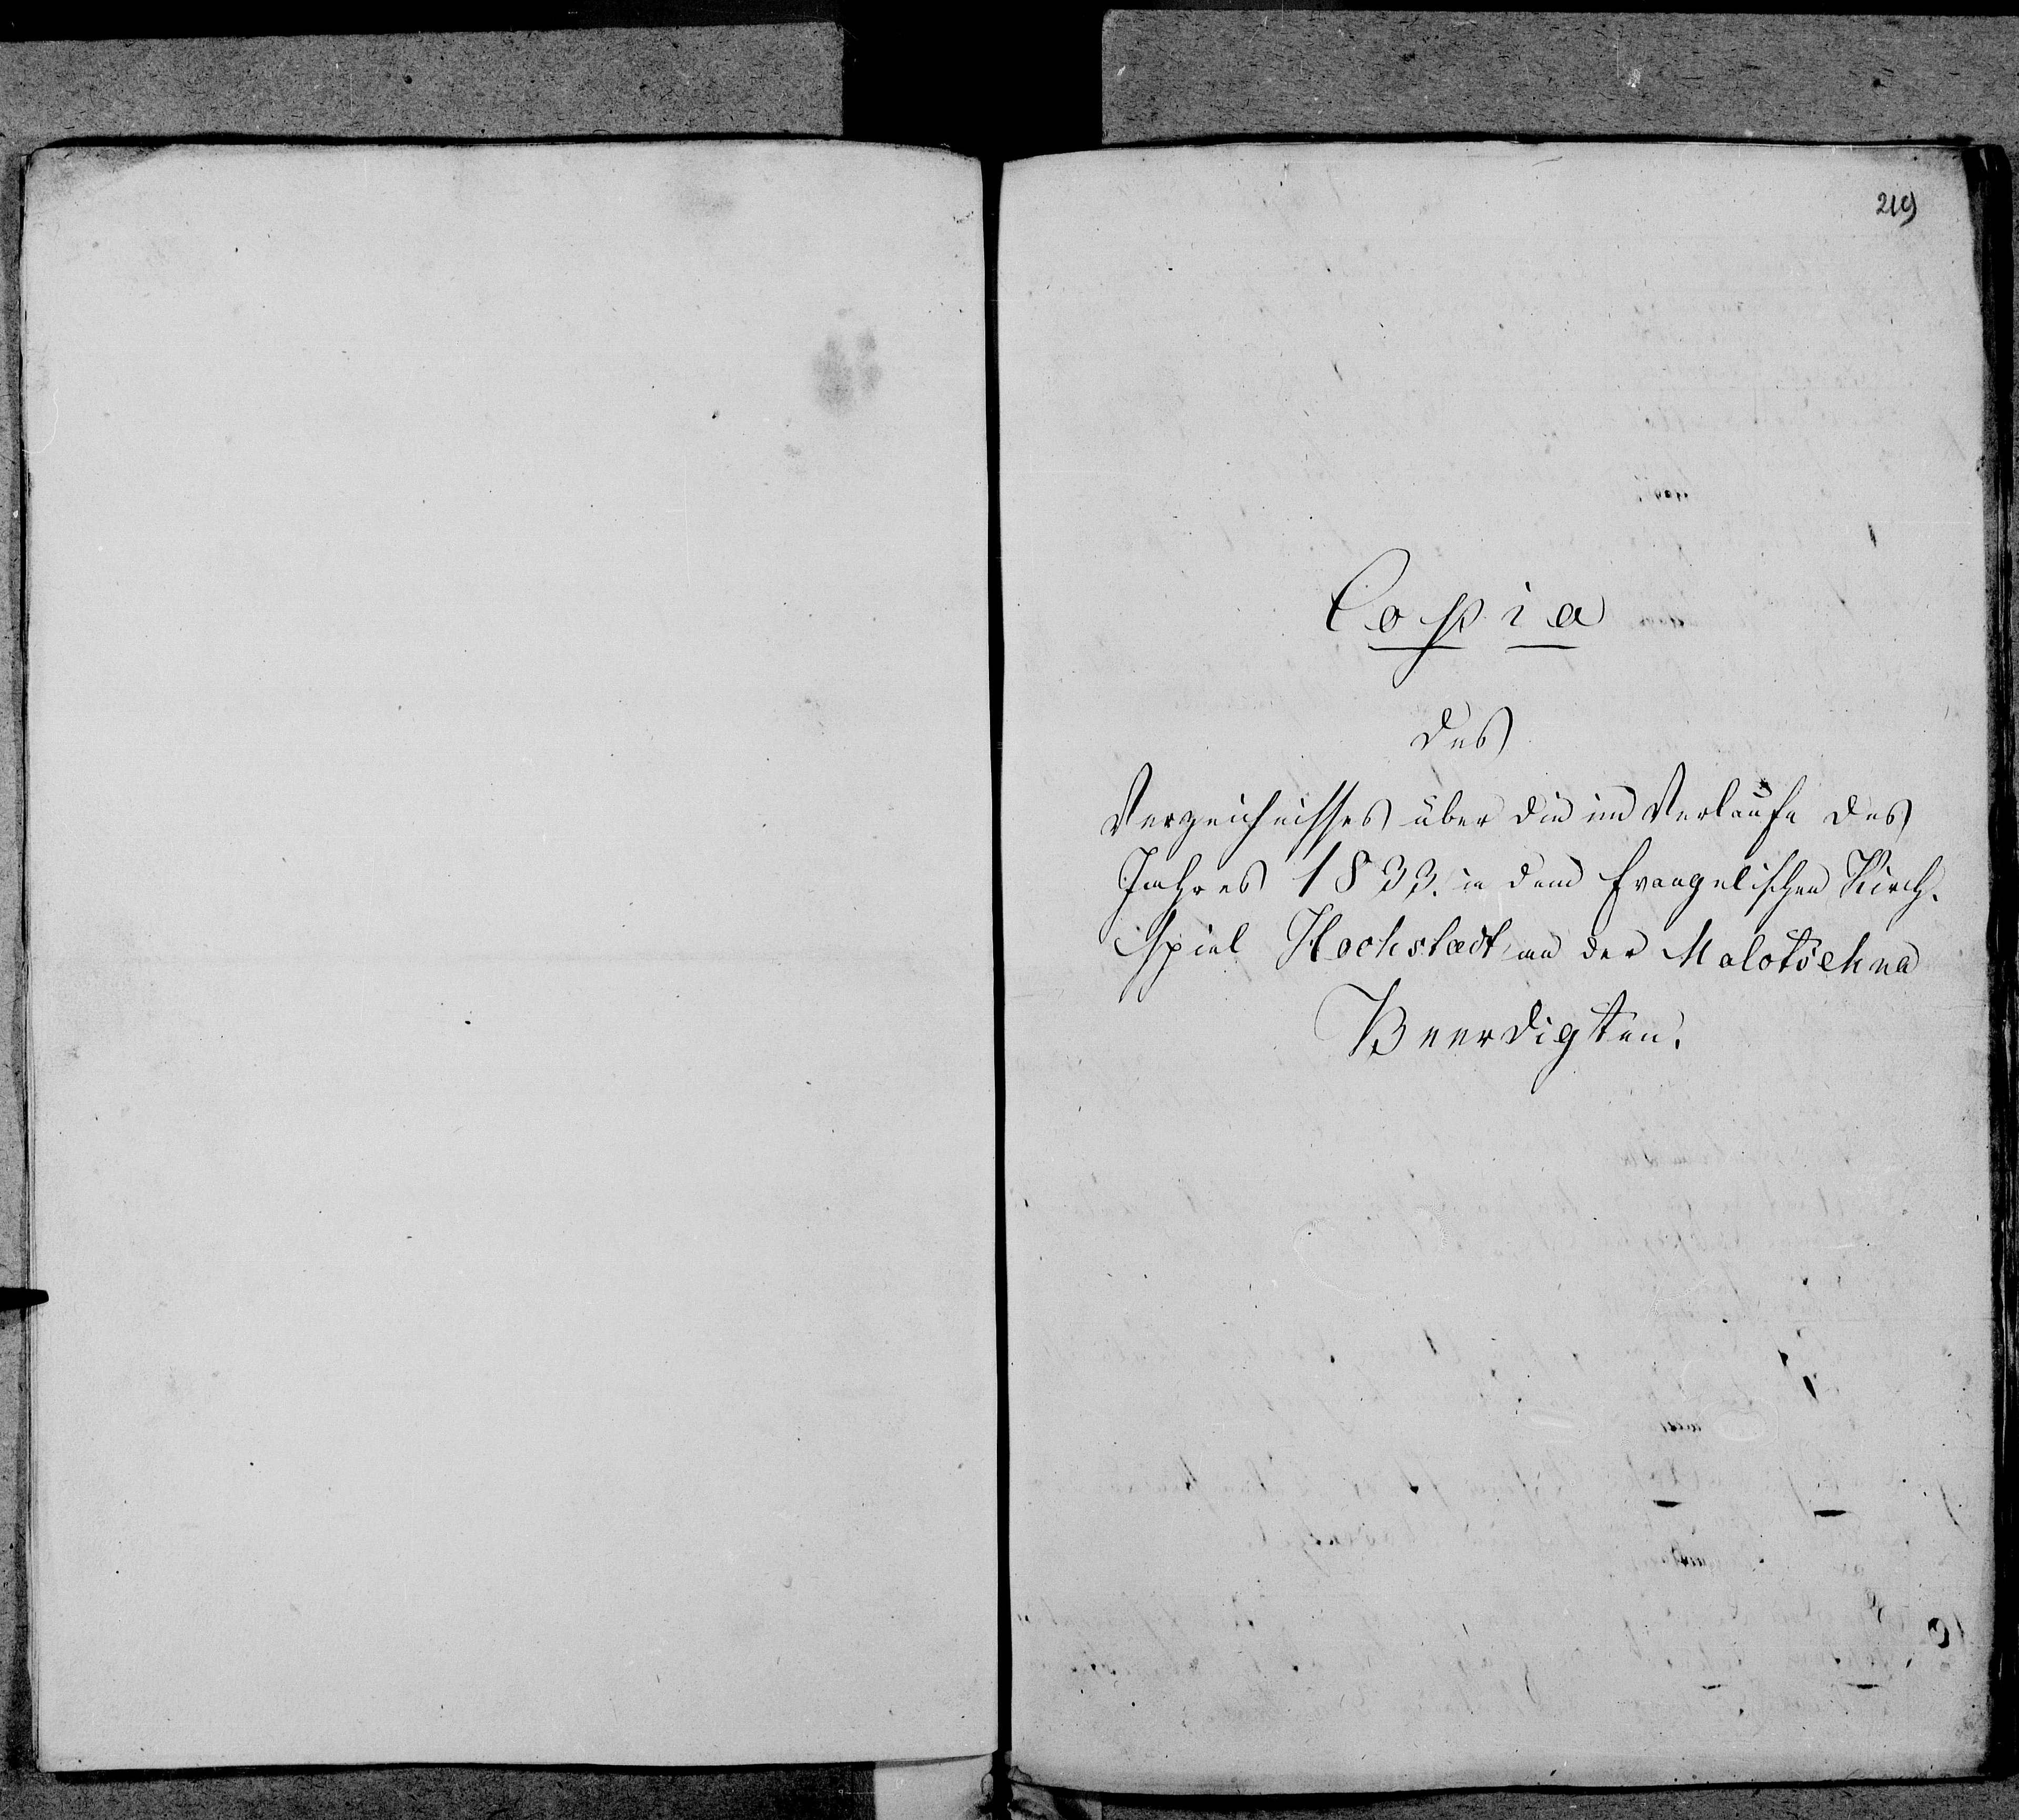 219
Copia
des
Verzeichnisses über die im Verlaufe des
Jahres 1833. in dem Evangelischen Kirch-
spiel Hochstædt an der Molotschna
Beerdigten.